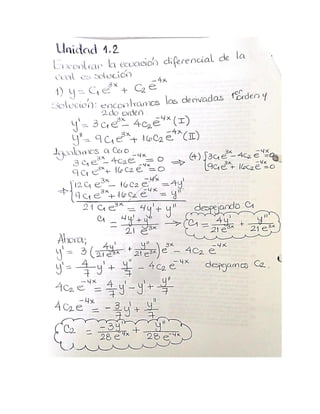 Unidad 1.2
Encontrar la ecuación diferencial de la
cual es solución
1) y = C₁e³ˣ + C₂e⁻⁴ˣ
Solución: encontramos las derivadas 1er orden y
2do orden
y' = 3C₁e³ˣ - 4C₂e⁻⁴ˣ (I)
y'' = 9C₁e³ˣ + 16C₂e⁻⁴ˣ (II)
Igualamos a Cero
3C₁e³ˣ - 4C₂e⁻⁴ˣ = 0 ⇒ (4) { 3C₁e³ˣ - 4C₂e⁻⁴ˣ = 0
9C₁e³ˣ + 16C₂e⁻⁴ˣ = 0 9C₁e³ˣ + 16C₂e⁻⁴ˣ = 0
⇒ { 12C₁e³ˣ - 16C₂e⁻⁴ˣ = 4y'
9C₁e³ˣ + 16C₂e⁻⁴ˣ = y''
21C₁e³ˣ = 4y' + y'' despejando C₁
C₁ = (4y' + y'')/(21e³ˣ) → C₁ = 4y'/(21e³ˣ) + y''/(21e³ˣ)
Ahora;
y' = 3(4y'/(21e³ˣ) + y''/(21e³ˣ))e³ˣ - 4C₂e⁻⁴ˣ
y' = 4/7 y' + y''/7 - 4C₂e⁻⁴ˣ despejamos C₂.
4C₂e⁻⁴ˣ = 4/7 y' - y' + y''/7
4C₂e⁻⁴ˣ = -3/7 y' + y''/7
C₂ = -3y'/(28e⁻⁴ˣ) + y''/(28e⁻⁴ˣ)